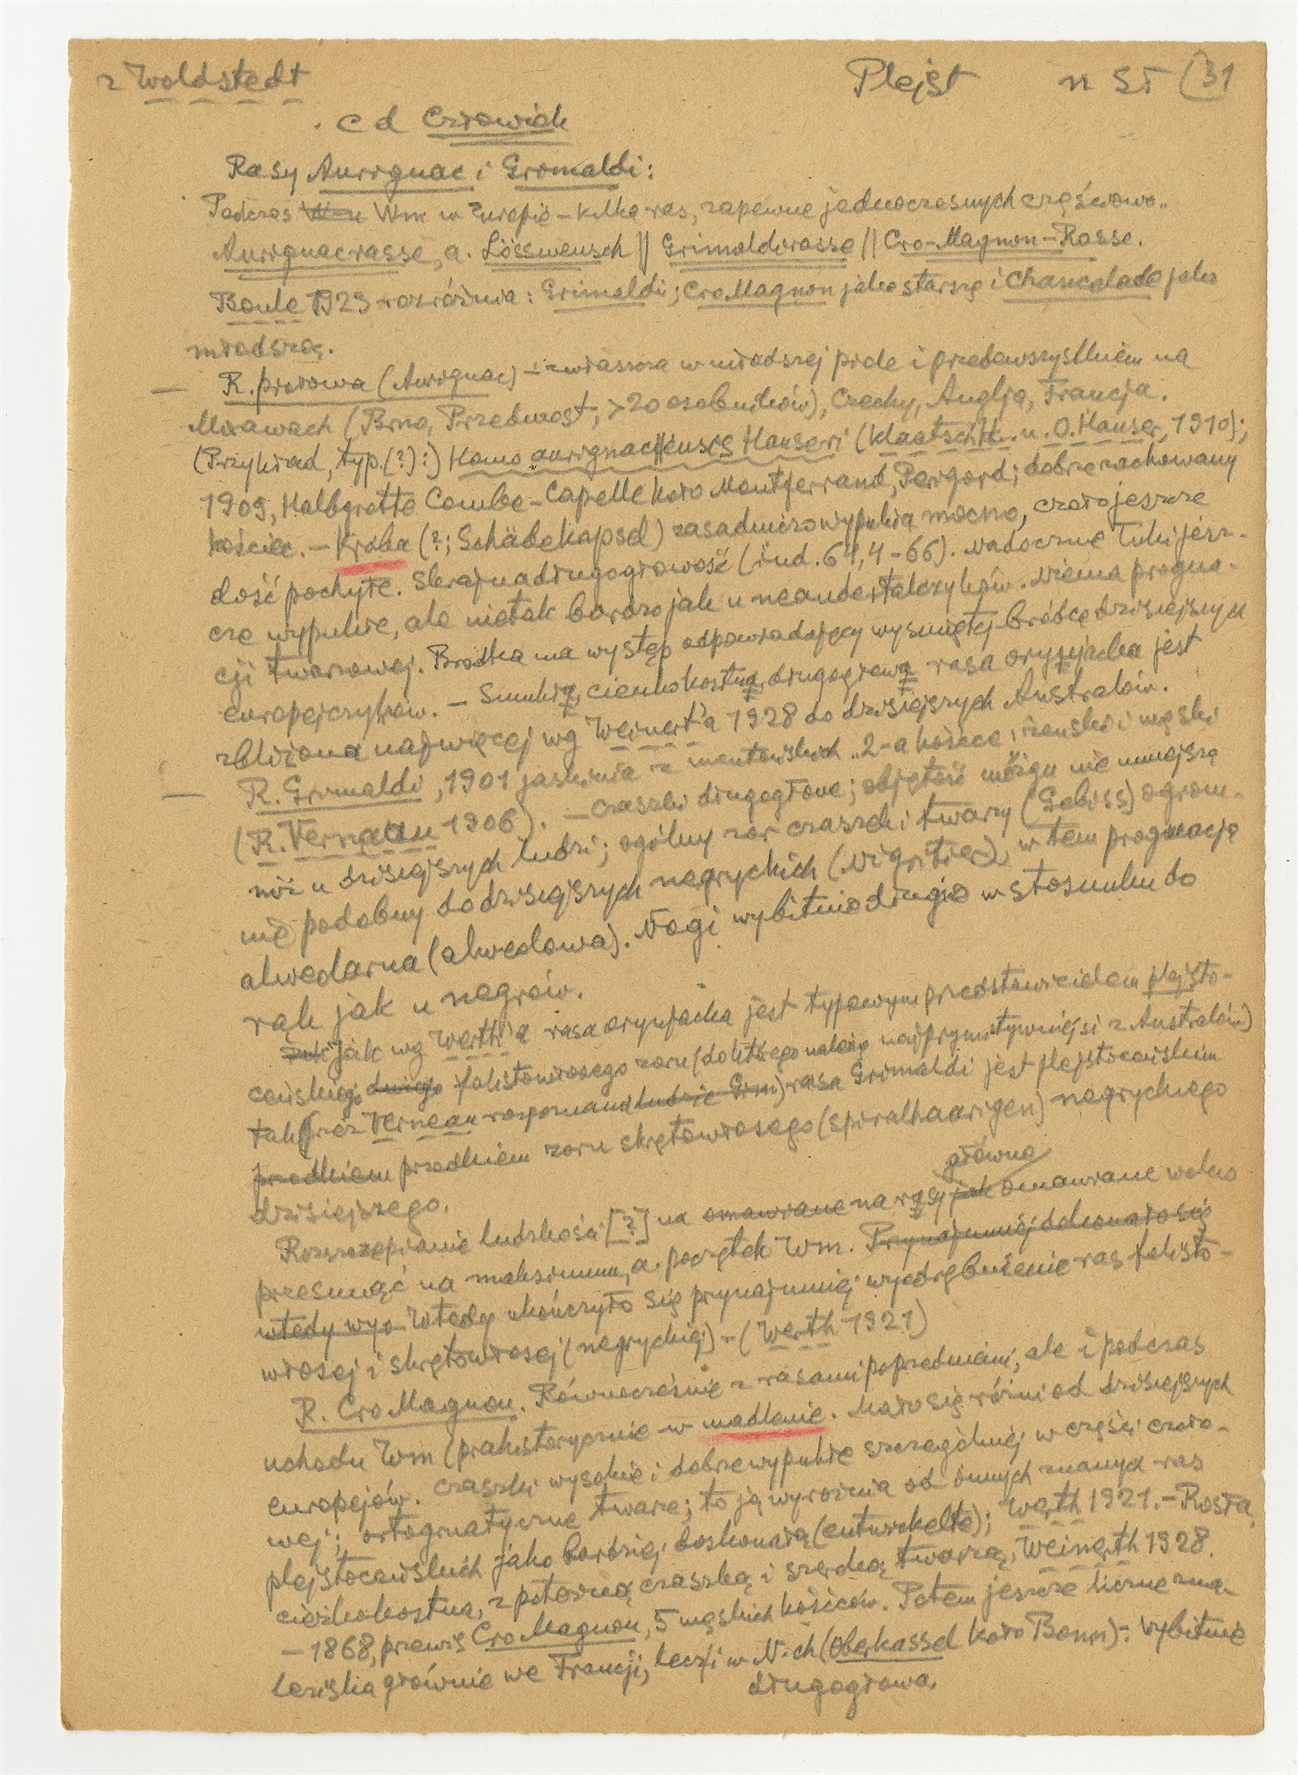 z Woldstedt Plejst n 5I (31
c d Człowiek
Rasy Aurignac i Grimaldi:
Podczas W-u Wm w Europie – kilka ras, zapewne jednoczesnych częściowo..
Aurignacrasse, a. Lössmensch || Grimaldirasse || Cro-Magnon-Rasse.
Boule 1923 rozróżnia: Grimaldi; CroMagnon jako starszą i Chancelade jako
młodszą.
— R. (Aurignac) – zwłaszcza w młodszej pcle i przedewszystkiem na
Morawach (Brno, Przedmost, >20 osobników), Czechy, Anglja, Francja.
(Przykład, typ.(?):) Homo aurignaciensis Hauseri (Klaatsch H. u. O. Hauser, 1910);
1909, Halbgrotte Combe-Capelle koło Montferrand, Perigord; dobrze zachowany
kościec. – Króba (?; Schädelkapsel) zasadniczo wypukła mocno, czoło jeszcze
dość pochyłe. Skrajna długogłowość (ind. 64,4–66). Nadoczne łuki jesz-
cze wypukłe, ale nie tak bardzo jak u neandertalczyków. Niema progna-
cji twarzowej. Brodka ma występ odpowiadający wysuniętej bródce dzisiejszych
europejczyków. – Smukła, cienkokostna, długogłowa rasa oryniacka jest
zbliżona najwięcej wg Weinert'a 1928 do dzisiejszych Australów.
— R. Grimaldi, 1901 jaskinia z mentońskich.. 2-a kośćce, żeński i męski
(R. Verneau 1906). – Czaszki długogłowe; objętość mózgu nie mniejsza
niż u dzisiejszych ludzi; ogólny zar czaszki i twarzy (Gebiss) ogrom-
nie podobny do dzisiejszych negryckich (Nigritier), w tem prognacja
alwedarna (alweolowa). Nogi wybitnie długie w stosunku do
rąk jak u negrów.
jak wg Werth'a rasa oryniacka jest typowym przedstawicielem plejsto-
ceńskiego falistowłosego zaru (do którego należą najprymitywniejsi z Australów)
tak (przez Verneau rozpoznana ludzie Grm) rasa Grimaldi jest plejstoceńskim
przodkiem przodkiem zaru skrętowłosego (spiralhaarigen) negryckiego
dzisiejszego.
główne
Rozszczepienie ludzkości [?] na omawiane na rasy jak omawiane wolno
przesunąć na maksimum, a. początek Wm. Przynajmniej dokonało się
wtedy wyo Wtedy ukończyło się przynajmniej wyodrębnienie ras falisto-
włosej i skrętowłosej (negryckiej) – (Werth 1921)
R. CroMagnon. Równocześnie z rasami poprzedniemi, ale i podczas
uchodu Wm (prahistorycznie w madlenie. Mało się różni od dzisiejszych
europejów. Czaszki wysokie i dobrze wypukłe szczególniej w części czoło-
wej; ortognatyczne twarze; to ją wyróżnia od innych znanych ras
plejstoceńskich jako bardziej doskonałą (entwickelte); Werth 1921. – Rosła,
ciężkokostna, z potężną czaszką i szeroką twarzą, Weinerth 1928.
– 1868, pierwsi CroMagnon, 5 męskich kośćców. Potem jeszcze liczne zna-
leziska głównie we Francji, lecz i w N-ch (Oberkassel koło Bonn) – Wybitnie
długogłowa.